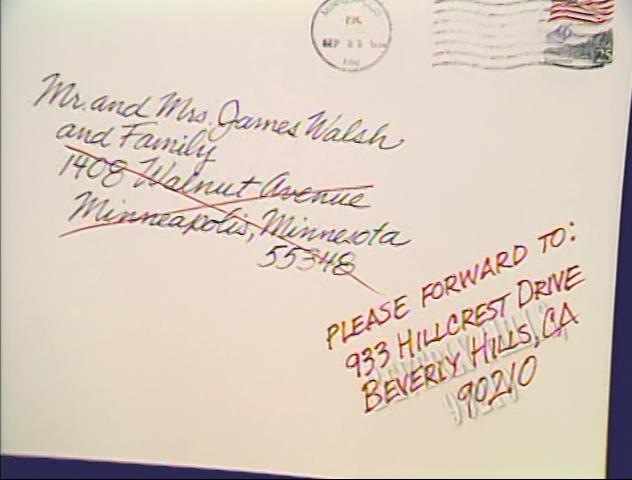 PM
SEP
25
Mr. and Mrs. James Walsh
and Family
1408 Walnut Avenue
Minneapolis, Minnesota
55348
PLEASE FORWARD TO:
933 HILLCREST DRIVE
BEVERLY HILLS, CA
90210